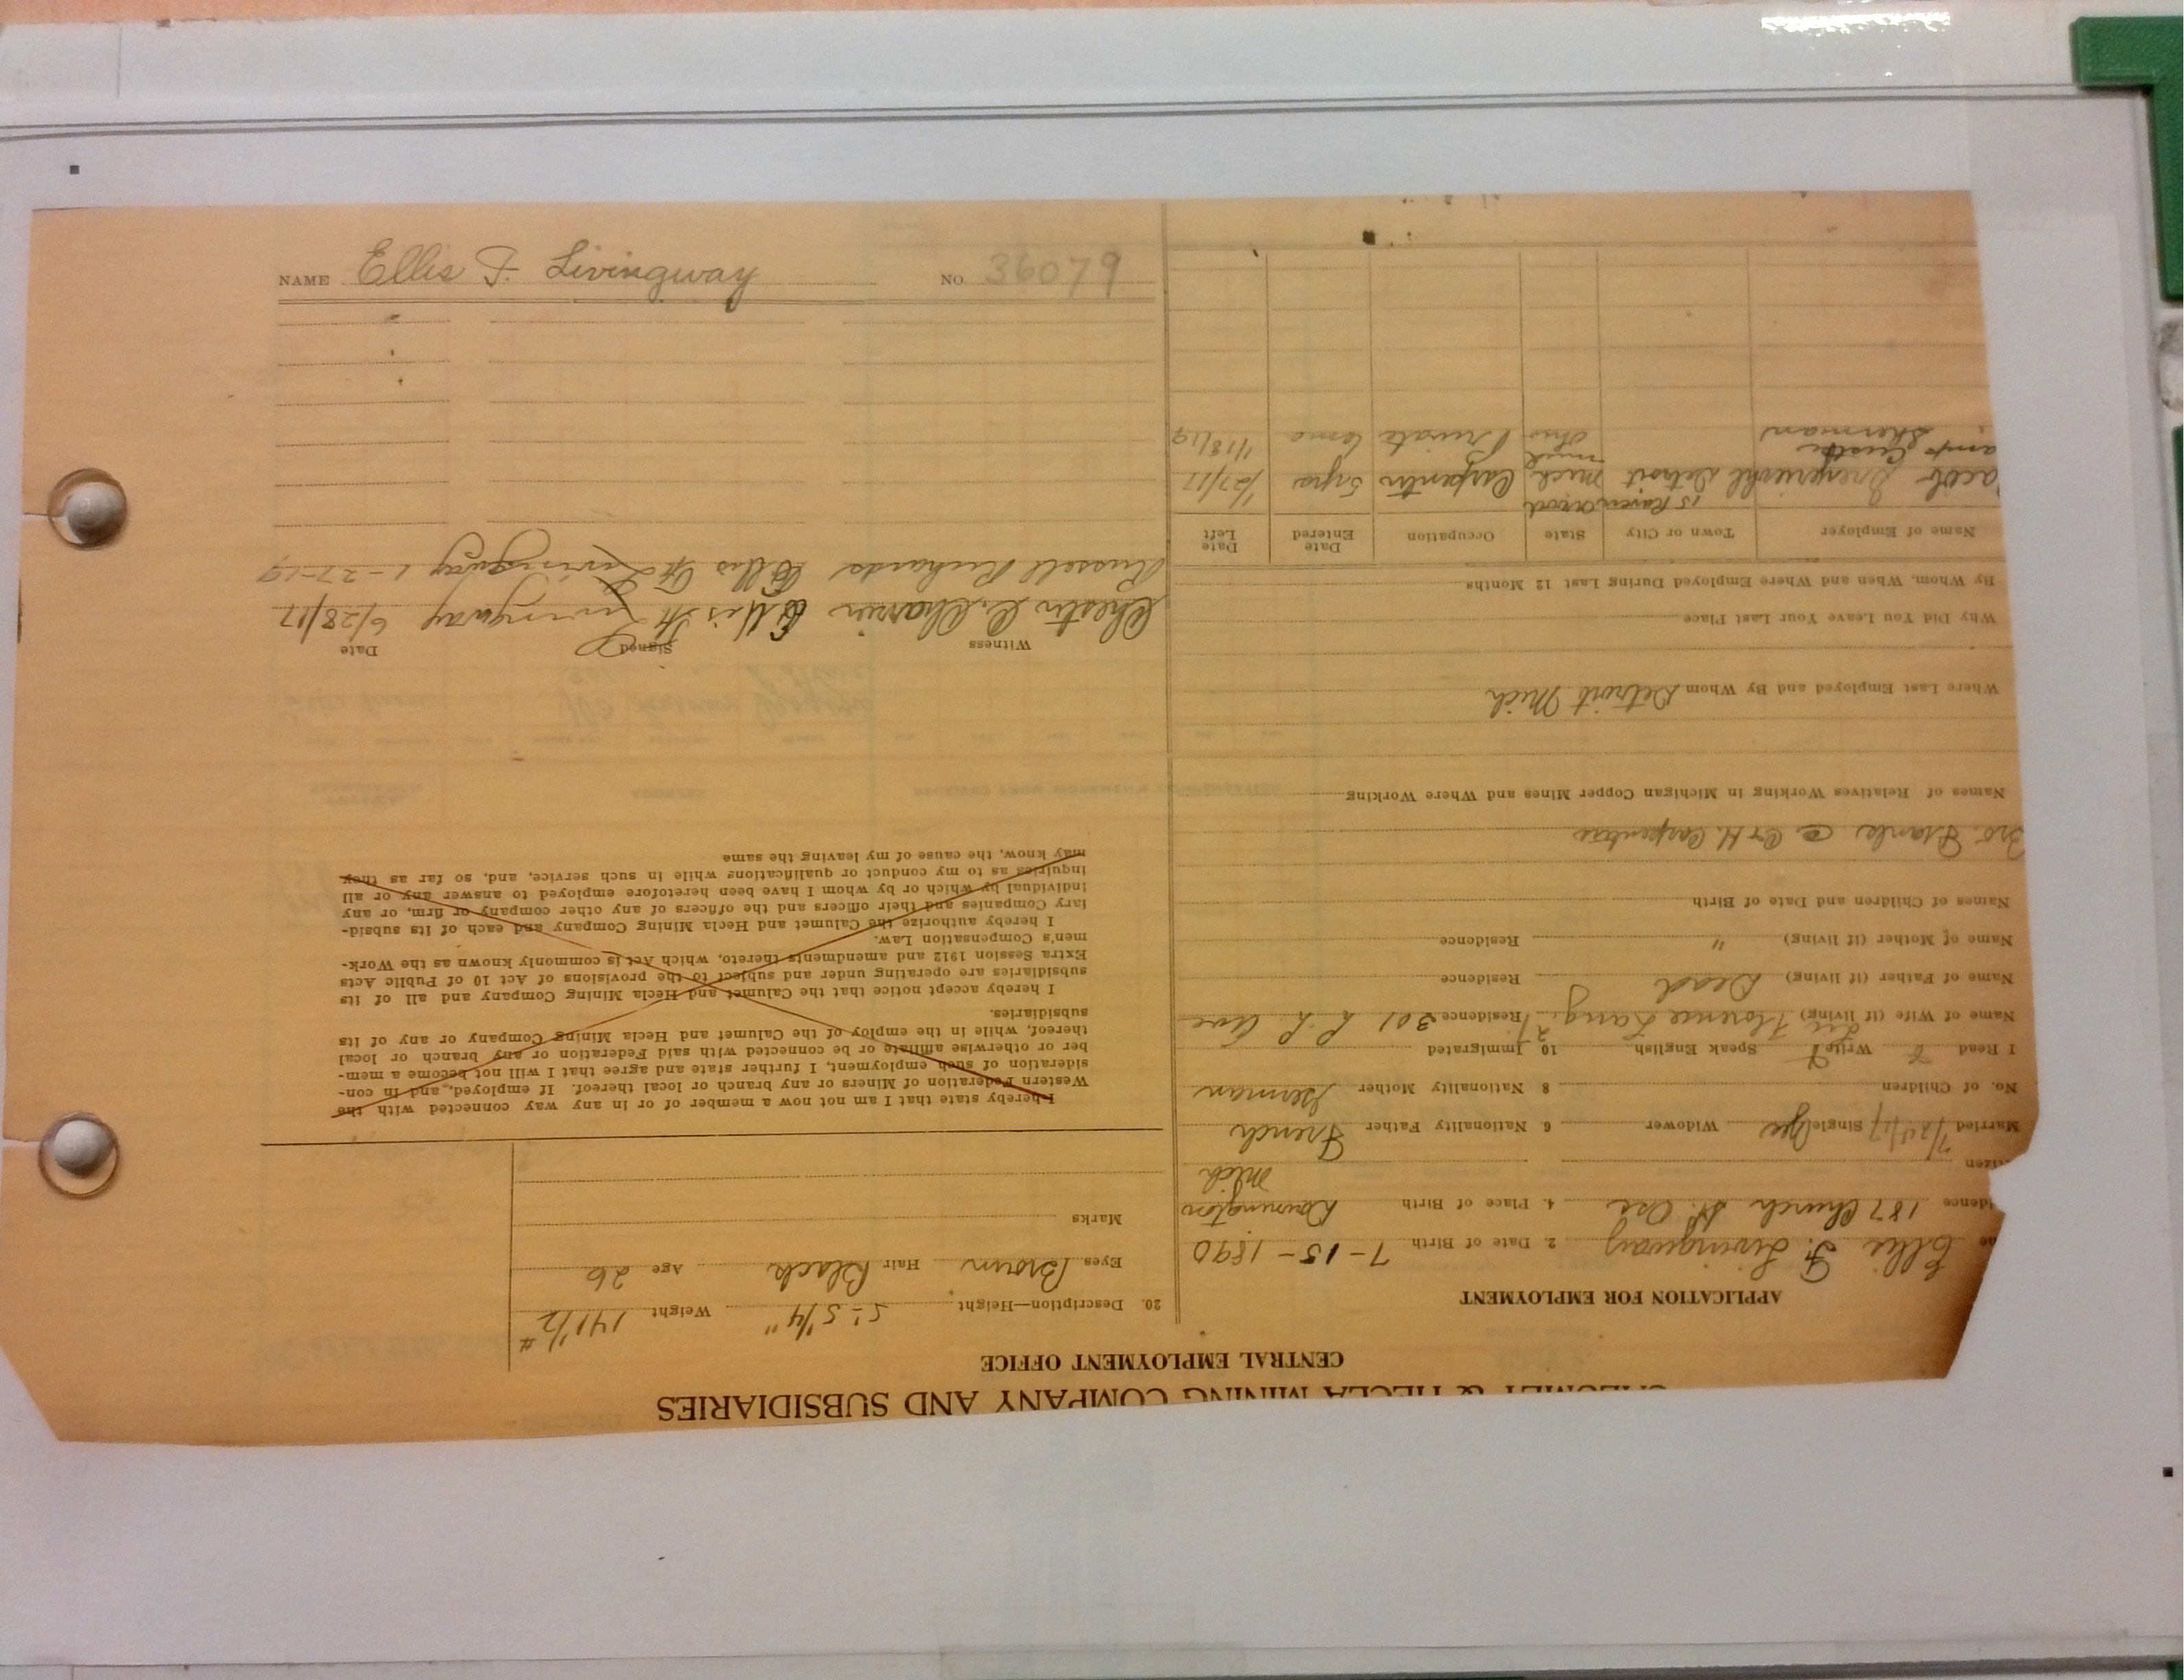 NAME Ellis F. Livingway NO 36079
CALUMET & HECLA MINING COMPANY AND SUBSIDIARIES
CENTRAL EMPLOYMENT OFFICE
APPLICATION FOR EMPLOYMENT
Ellis F. Livingway 2. Date of Birth 7-15-1890
187 Church St. Osc 4. Place of Birth
Mich
Married 7/24/17 Single Yes Widower 6. Nationality Father French
No. of Children 8 Nationality Mother German
I Read Write Speak English 10 Immigrated
Name of Wife (if living) Florence Lang. Residence 301 Ave
Name of Father (if living) Dead Residence
Name of Mother (if living) " Residence
Names of Children and Date of Birth
Bro. Frank @ C & H. Carpenters
Names of Relatives Working in Michigan Copper Mines and Where Working
Where Last Employed and By Whom Detroit Mich
Why Did You Leave Your Last Place
By Whom, When and Where Employed During Last 12 Months
Name of Employer Town or City State Occupation Date Entered Date Left
Detroit Mich Carpenter 1/27/17
Camp Custer Mich
Sherman Ohio Private 1/18/19
20. Description—Height 5'-5 1/4" Weight 141 1/2 #
Eyes Brown Hair Black Age 26
Marks
I hereby state that I am not now a member of or in any way connected with the
Western Federation of Miners or any branch or local thereof. If employed, and in con-
sideration of such employment, I further state and agree that I will not become a mem-
ber or otherwise affiliate or be connected with said Federation or any branch or local
thereof, while in the employ of the Calumet and Hecla Mining Company or any of its
subsidiaries.
I hereby accept notice that the Calumet and Hecla Mining Company and all of its
subsidiaries are operating under and subject to the provisions of Act 10 of Public Acts
Extra Session 1912 and amendments thereto, which Act is commonly known as the Work-
men's Compensation Law.
I hereby authorize the Calumet and Hecla Mining Company and each of its subsid-
iary Companies and their officers and the officers of any other company or firm, or any
individual by which or by whom I have been heretofore employed to answer any or all
inquiries as to my conduct or qualifications while in such service, and, so far as they
may know, the cause of my leaving the same
Witness Signed Date
Chester Ellis H Livingway 6/28/17
Russell Richards Ellis H Livingway 1-27-19